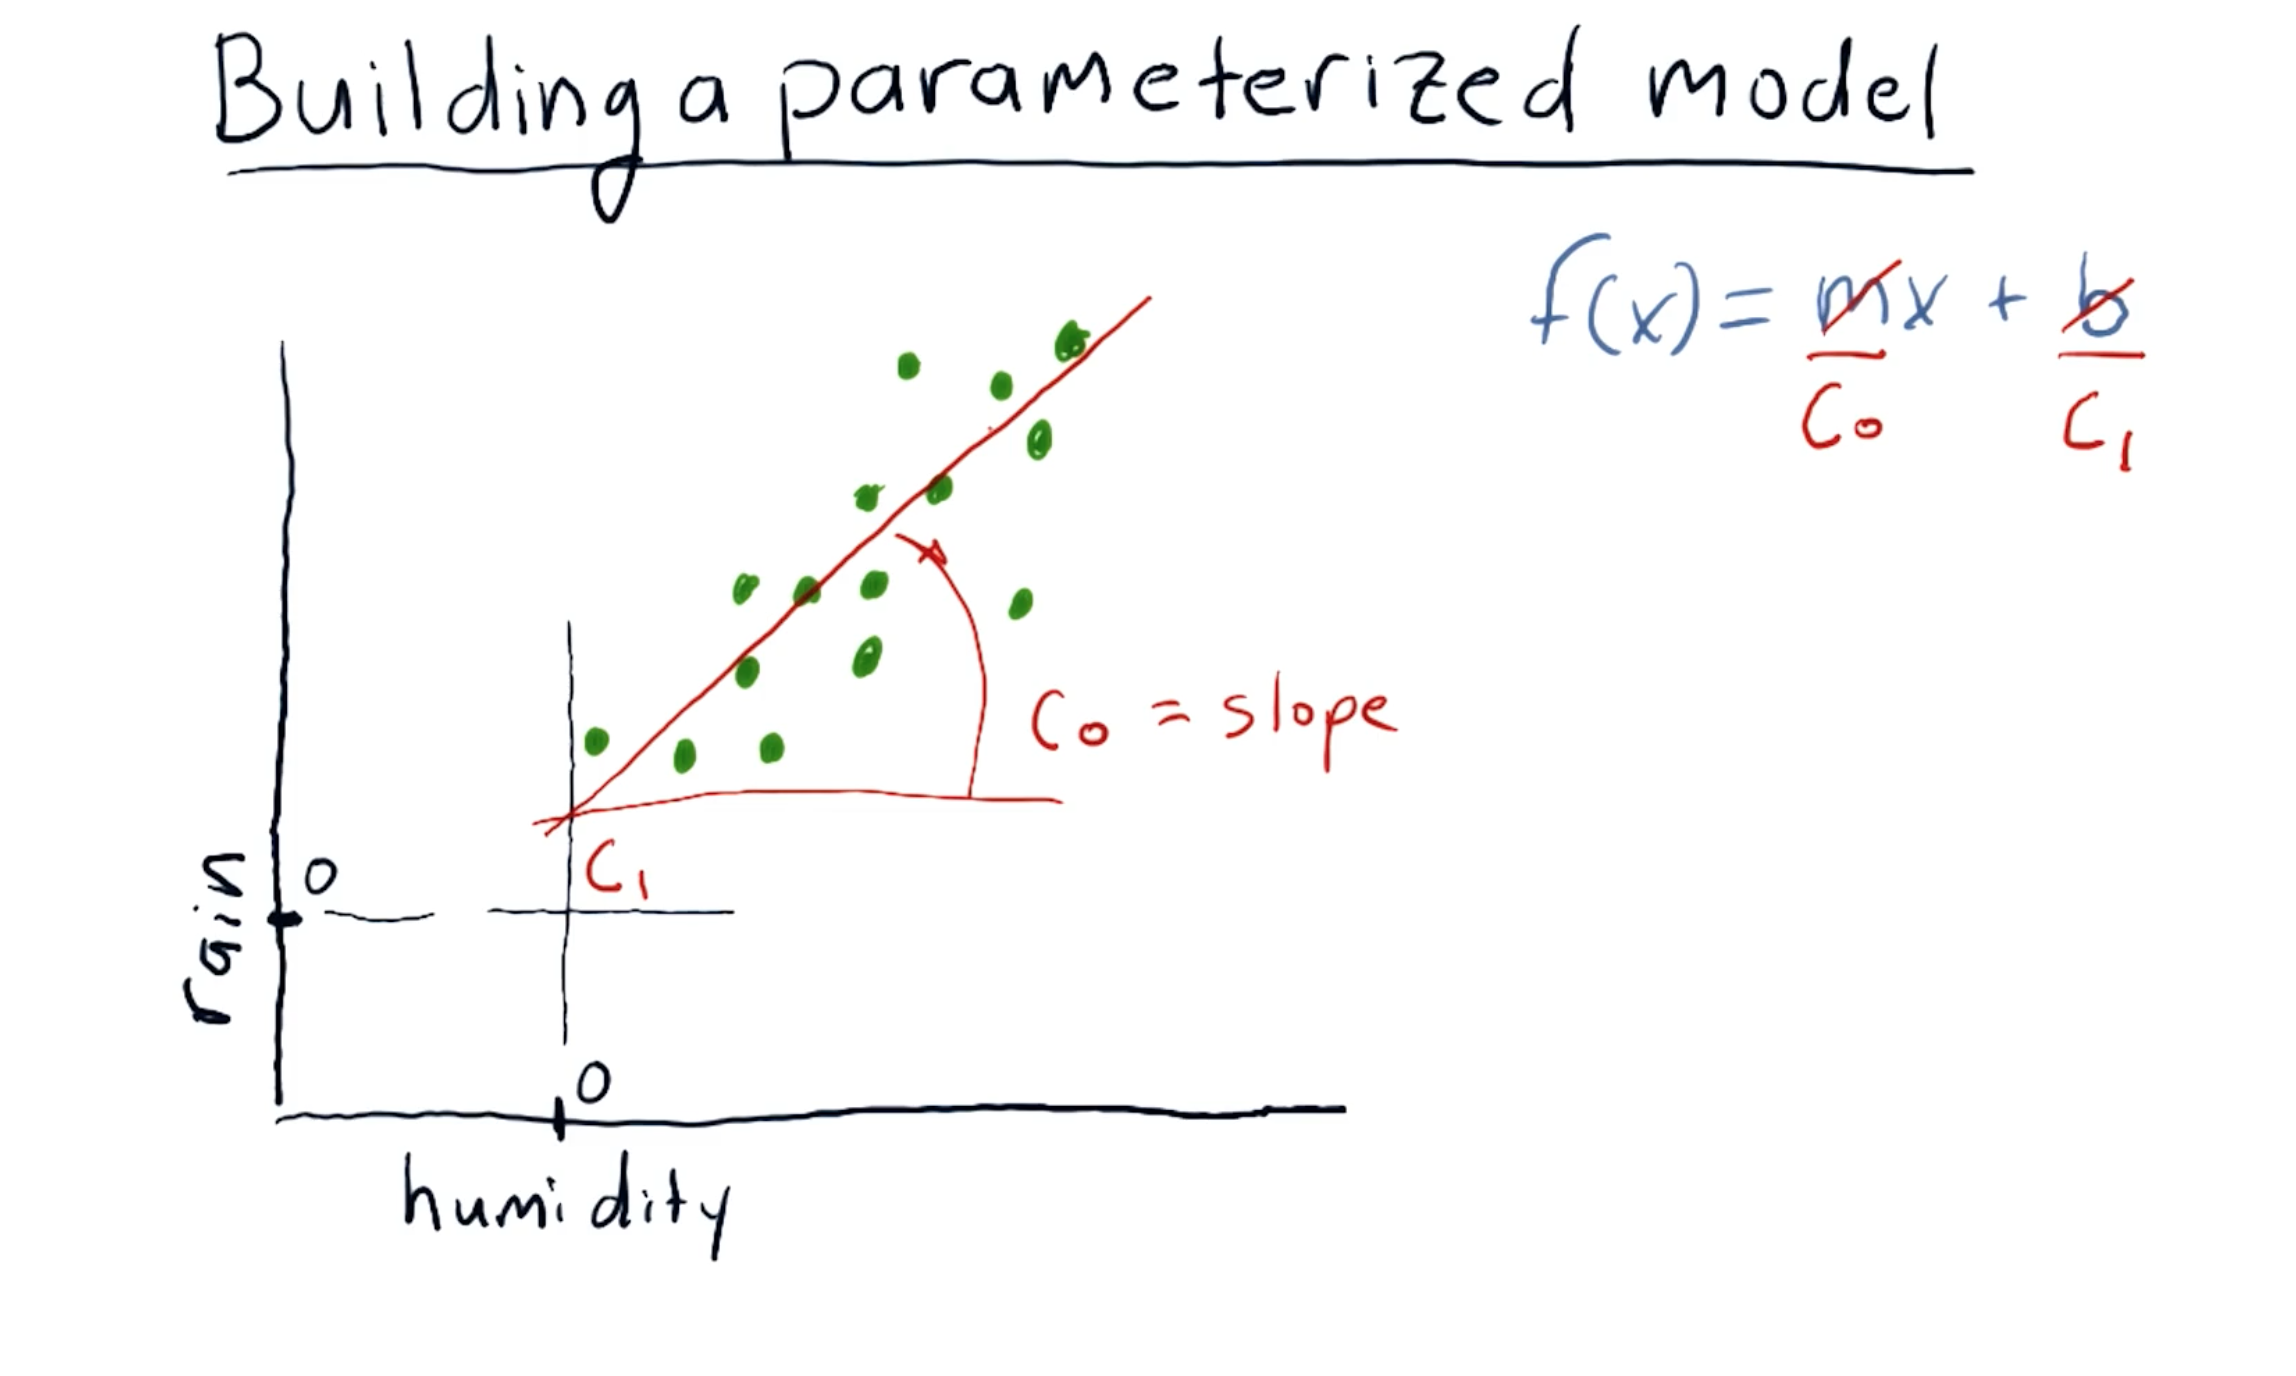 Building a parameterized model
f(x) = mx + b
C0 C1
C0 = slope
C1
rain
0
0
humidity